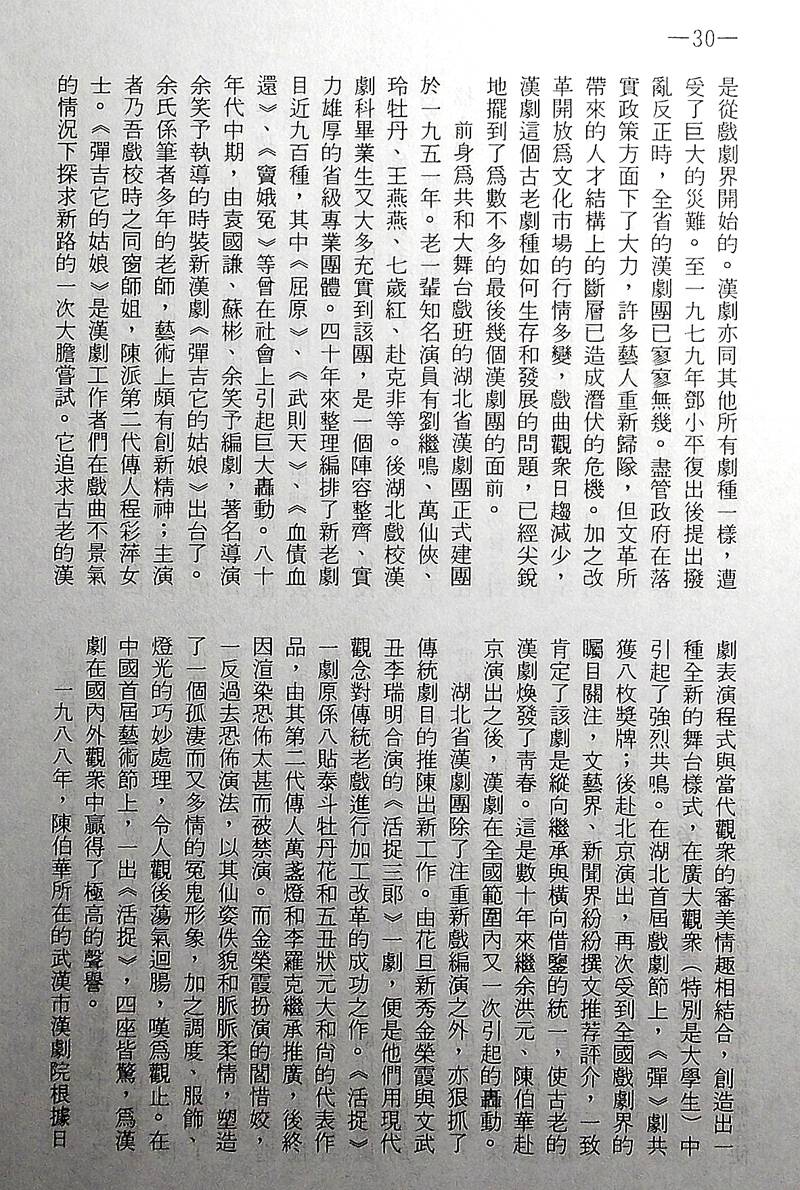 —30—
是從戲劇界開始的。漢劇亦同其他所有劇種一樣，遭
受了巨大的災難。至一九七九年鄧小平復出後提出撥
亂反正時，全省的漢劇團已寥寥無幾。盡管政府在落
實政策方面下了大力，許多藝人重新歸隊，但文革所
帶來的人才結構上的斷層已造成潛伏的危機。加之改
革開放爲文化市場的行情多變，戲曲觀衆日趨減少，
漢劇這個古老劇種如何生存和發展的問題，已經尖銳
地擺到了爲數不多的最後幾個漢劇團的面前。
前身爲共和大舞台戲班的湖北省漢劇團正式建團
於一九五一年。老一輩知名演員有劉繼鳴、萬仙俠、
玲牡丹、王燕燕、七歲紅、赴克非等。後湖北戲校漢
劇科畢業生又大多充實到該團，是一個陣容整齊、實
力雄厚的省級專業團體。四十年來整理編排了新老劇
目近九百種，其中《屈原》、《武則天》、《血債血
還》、《竇娥冤》等曾在社會上引起巨大轟動。八十
年代中期，由袁國謙、蘇彬、余笑予編劇，著名導演
余笑予執導的時裝新漢劇《彈吉它的姑娘》出台了。
余氏係筆者多年的老師，藝術上頗有創新精神；主演
者乃吾戲校時之同窗師姐，陳派第二代傳人程彩萍女
士。《彈吉它的姑娘》是漢劇工作者們在戲曲不景氣
的情況下探求新路的一次大膽嘗試。它追求古老的漢
劇表演程式與當代觀衆的審美情趣相結合，創造出一
種全新的舞台樣式，在廣大觀衆（特別是大學生）中
引起了強烈共鳴。在湖北首屆戲劇節上，《彈》劇共
獲八枚獎牌；後赴北京演出，再次受到全國戲劇界的
矚目關注，文藝界、新聞界紛紛撰文推荐評介，一致
肯定了該劇是縱向繼承與橫向借鑒的統一，使古老的
漢劇煥發了青春。這是數十年來繼余洪元、陳伯華赴
京演出之後，漢劇在全國範圍內又一次引起的轟動。
湖北省漢劇團除了注重新戲編演之外，亦狠抓了
傳統劇目的推陳出新工作。由花旦新秀金榮霞與文武
丑李瑞明合演的《活捉三郎》一劇，便是他們用現代
觀念對傳統老戲進行加工改革的成功之作。《活捉》
一劇原係八貼泰斗牡丹花和五丑狀元大和尙的代表作
品，由其第二代傳人萬盞燈和李羅克繼承推廣，後終
因渲染恐佈太甚而被禁演。而金榮霞扮演的閻惜姣，
一反過去恐佈演法，以其仙姿佚貌和脈脈柔情，塑造
了一個孤凄而又多情的冤鬼形象，加之調度、服飾、
燈光的巧妙處理，令人觀後蕩氣迴腸，嘆爲觀止。在
中國首屆藝術節上，一出《活捉》，四座皆驚，爲漢
劇在國內外觀衆中贏得了極高的聲譽。
一九八八年，陳伯華所在的武漢市漢劇院根據日